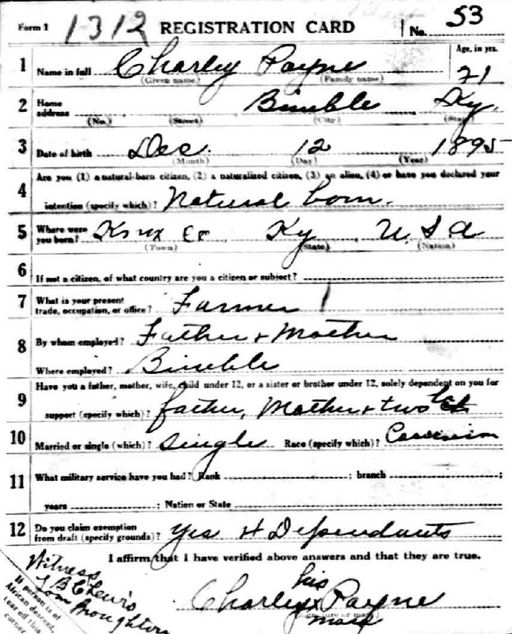 Form 1 1312 REGISTRATION CARD No. 53
1 Name in full Charley Payne Age, in yrs. 21
(Given name) (Family name)
2 Home address Bimble Ky.
(No.) (Street) (City) (State)
3 Date of birth Dec. 12 1895
(Month) (Day) (Year)
4 Are you (1) a natural-born citizen, (2) a naturalized citizen, (3) an alien, (4) or have you declared your
intention (specify which)? Natural born.
5 Where were you born? Knox Co Ky U S A
(Town) (State) (Nation)
6 If not a citizen, of what country are you a citizen or subject?
7 What is your present trade, occupation, or office? Farmer 1
8 By whom employed? Father & Mother
Where employed? Bimble
9 Have you a father, mother, wife, child under 12, or a sister or brother under 12, solely dependent on you for
support (specify which)? father, Mother & two
10 Married or single (which)? Single Race (specify which)?
11 What military service have you had? Rank ; branch ;
years ; Nation or State
12 Do you claim exemption from draft (specify grounds)? Yes 4 Dependants
I affirm that I have verified above answers and that they are true.
Witness
Tom Broughton
If person is of
African descent,
tear off this
corner
his
Charley x Payne
mark